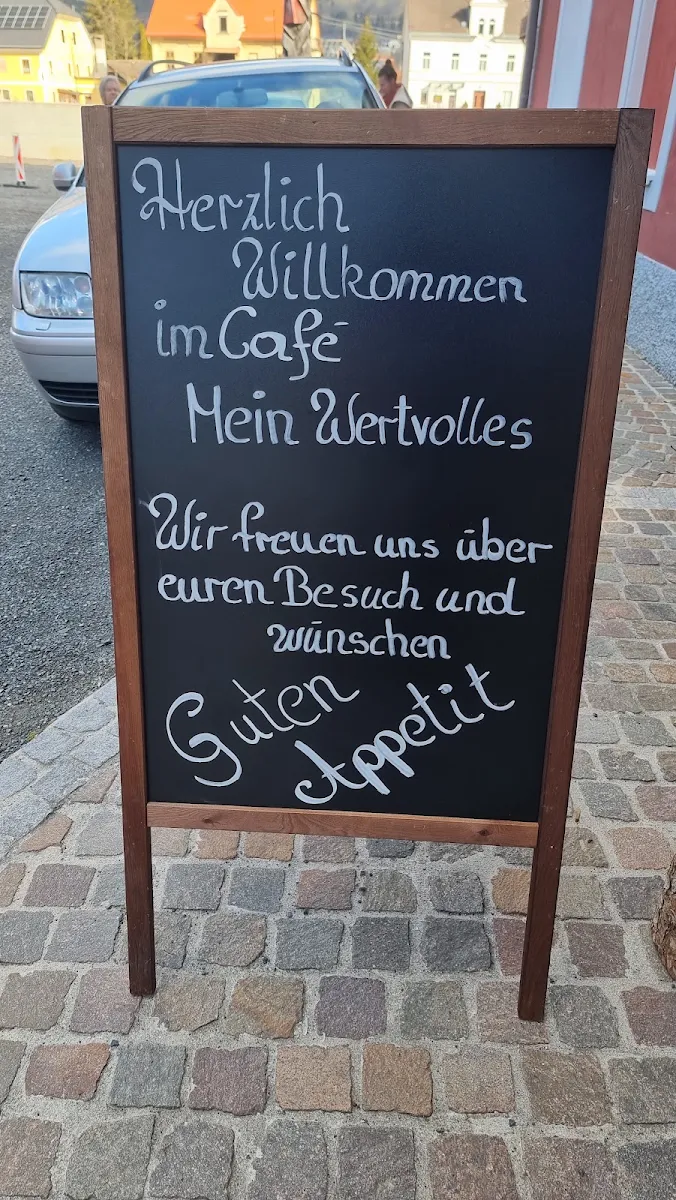 Herzlich
Willkommen
im Café
Mein Wertvolles
Wir freuen uns über
euren Besuch und
wünschen
Guten
Appetit